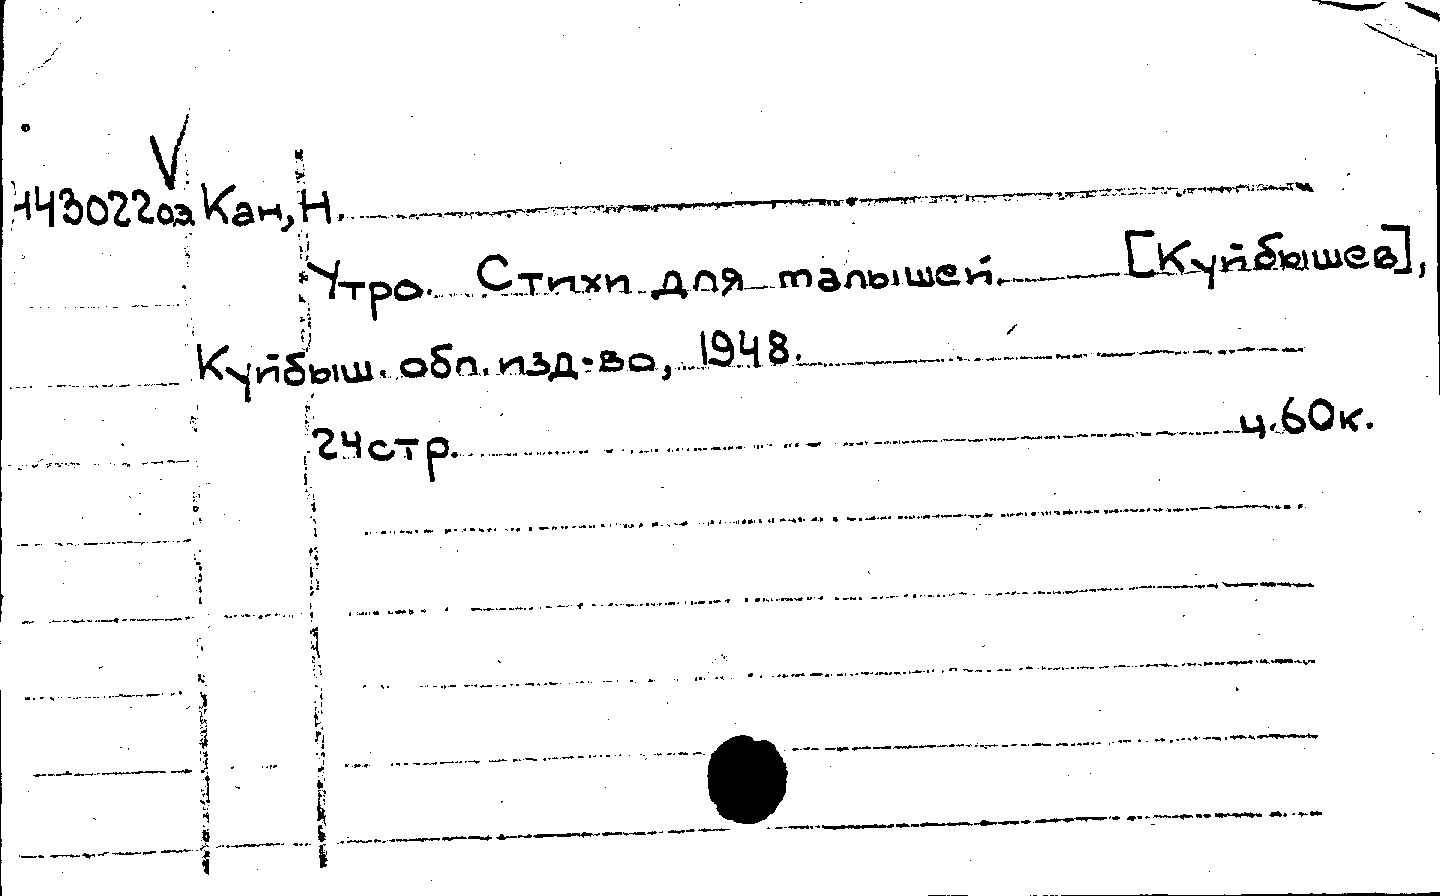 143022оэ Кан, Н.
Утро. Стихи для малышей. [Куйбышев],
Куйбыш. обл. изд-во, 1948.
24 стр. ц. 60 к.